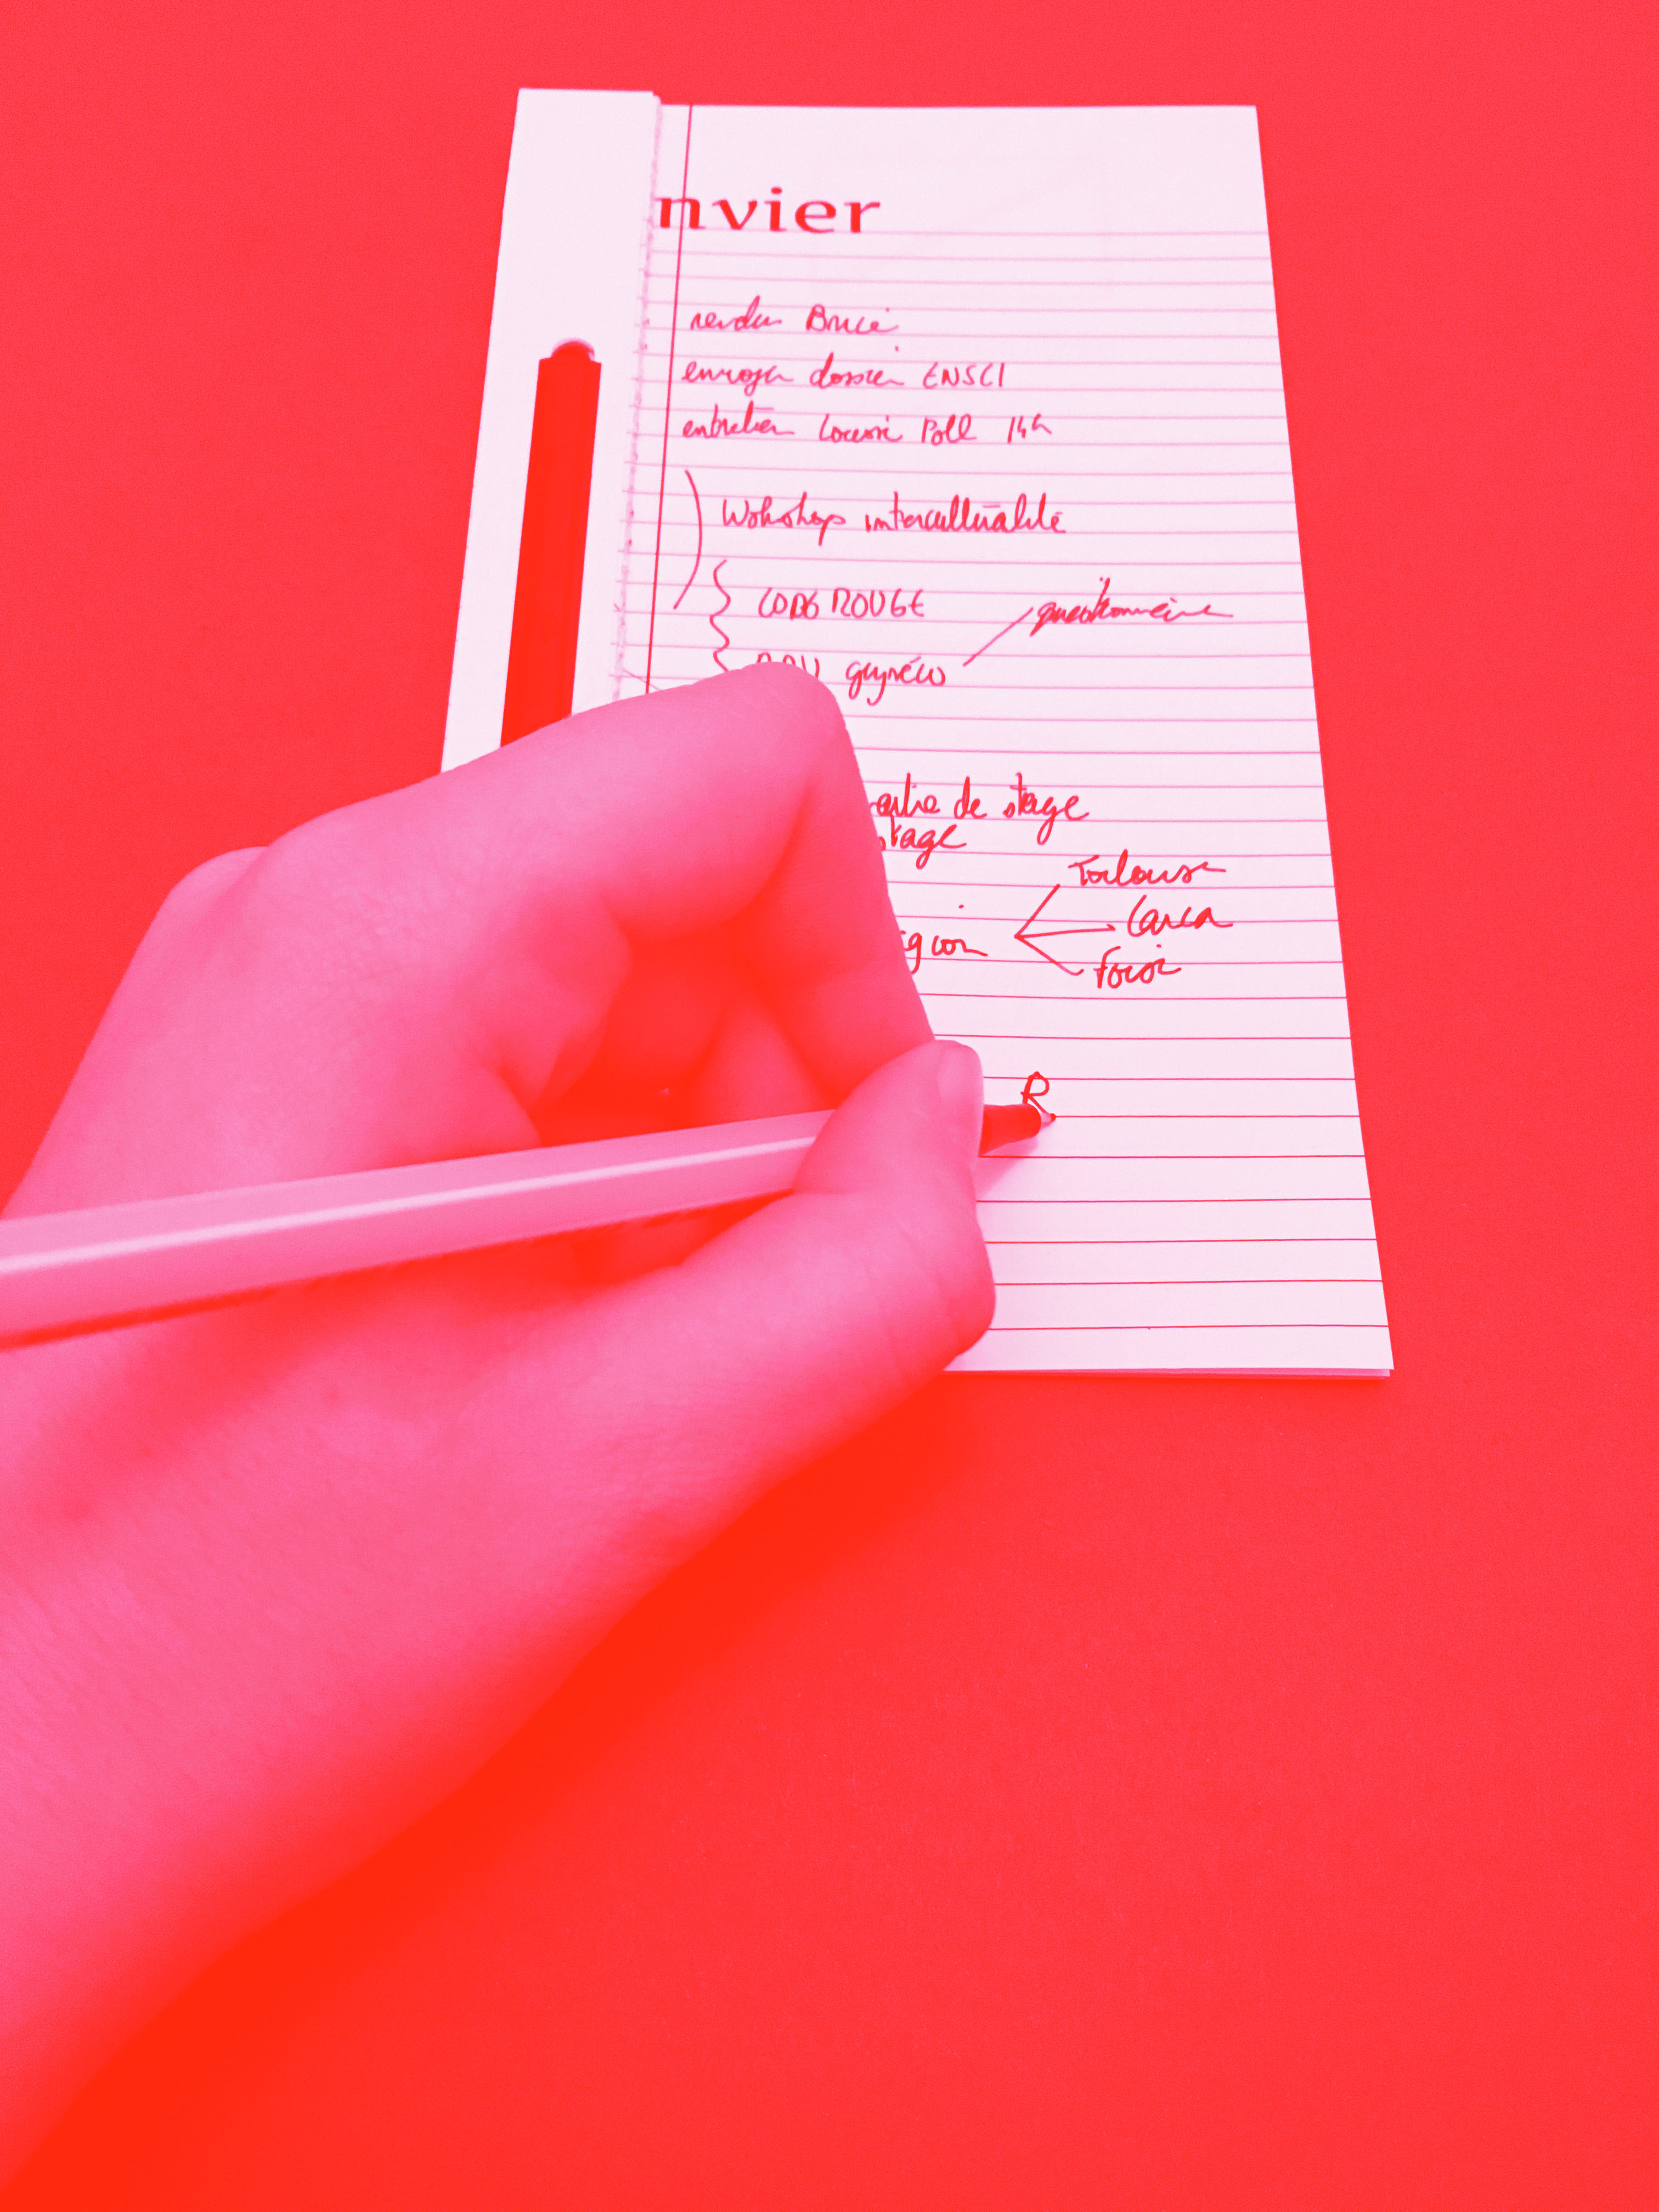 nvier
rendu Bruce
envoyer dossier ENSCI
entretien Poll 14h
Wokshop interculturalité
CODE ROUGE
questionnaire
gynéco
de stage
stage
Toulouse
Carca
Foix
R